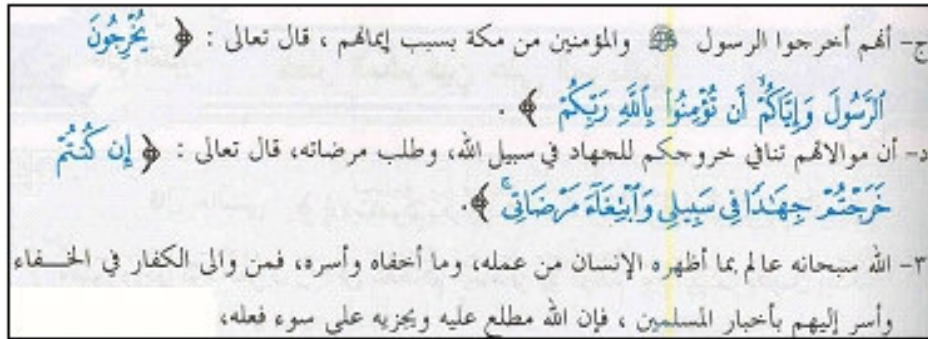 ج- أنهم أخرجوا الرسول ﷺ والمؤمنين من مكة بسبب إيمانهم ، قال تعالى : ﴿ يُخْرِجُونَ
ٱلرَّسُولَ وَإِيَّاكُمْ أَن تُؤْمِنُوا۟ بِٱللَّهِ رَبِّكُمْ ﴾ .
د- أن موالاتهم تنافي خروجكم للجهاد في سبيل الله، وطلب مرضاته، قال تعالى : ﴿ إِن كُنتُمْ
خَرَجْتُمْ جِهَٰدًا فِى سَبِيلِى وَٱبْتِغَآءَ مَرْضَاتِى ۚ ﴾.
٣- الله سبحانه عالم بما أظهره الإنسان من عمله، وما أخفاه وأسره، فمن والى الكفار في الخفاء
وأسر إليهم بأخبار المسلمين ، فإن الله مطلع عليه ويجزيه على سوء فعله،